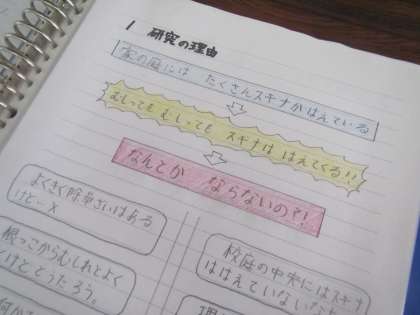 1 研究の理由
家の庭には たくさんスギナがはえている
むしっても むしっても スギナは はえてくる!!
なんとか ならないの?!
よくきく除草ざいはある
けど…×
根っこからむしれとよく
校庭の中央にはスギナ
ははえていない